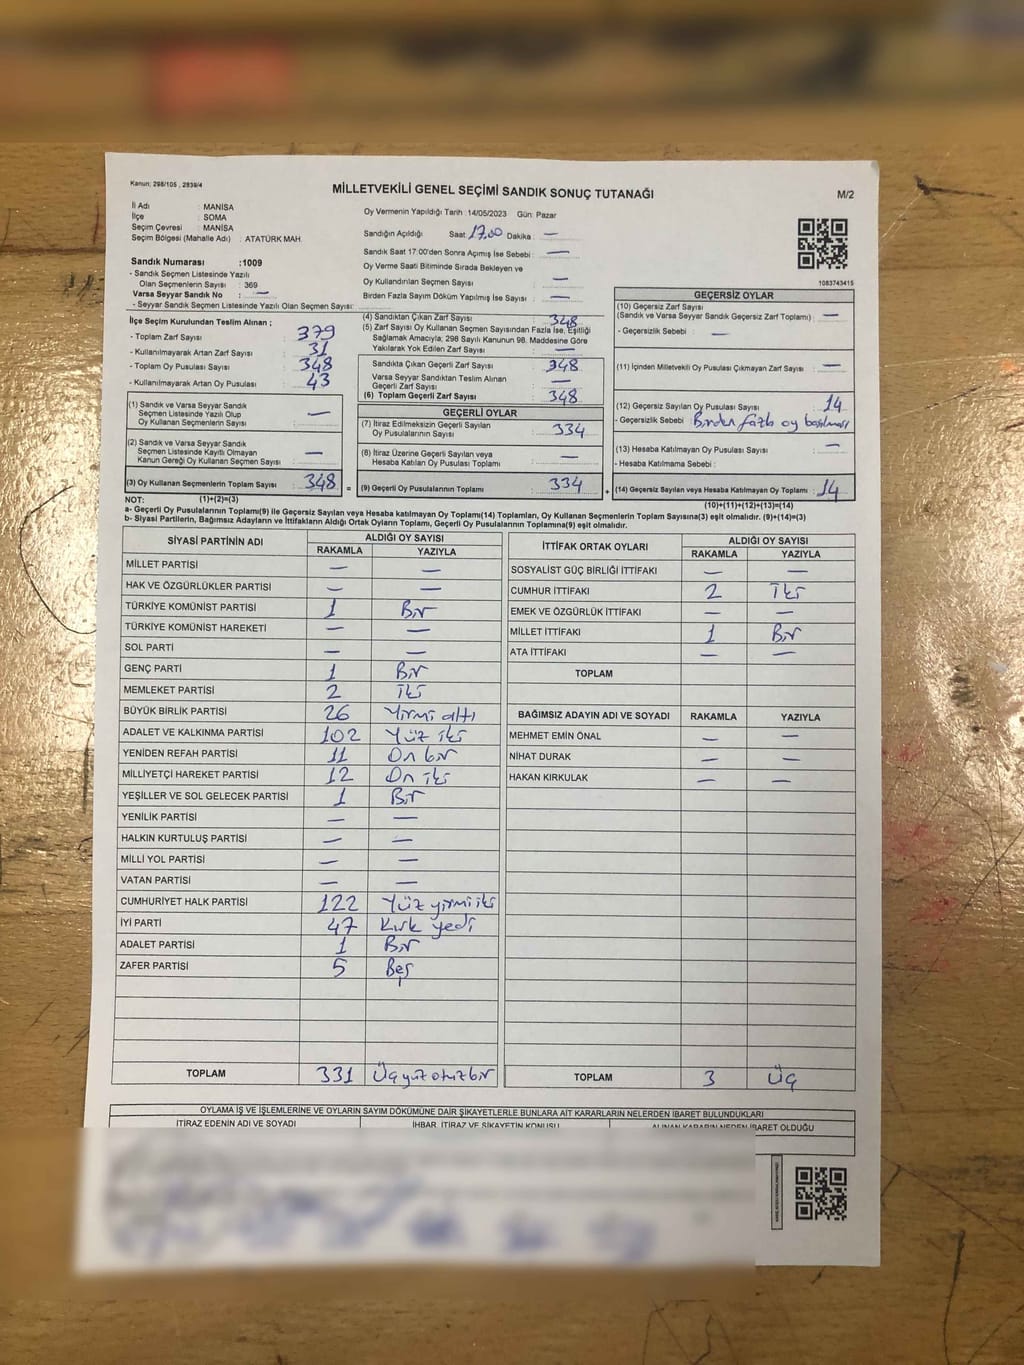 Kanun; 298/105 , 2839/4
MİLLETVEKİLİ GENEL SEÇİMİ SANDIK SONUÇ TUTANAĞI
M/2
İl Adı : MANİSA
İlçe : SOMA
Seçim Çevresi : MANİSA
Seçim Bölgesi (Mahalle Adı) : ATATÜRK MAH.
Sandık Numarası :1009
- Sandık Seçmen Listesinde Yazılı
Olan Seçmenlerin Sayısı : 369
Varsa Seyyar Sandık No : —
- Seyyar Sandık Seçmen Listesinde Yazılı Olan Seçmen Sayısı:
Oy Vermenin Yapıldığı Tarih :14/05/2023 Gün: Pazar
Sandığın Açıldığı Saat: 17.00 Dakika : —
Sandık Saat 17:00'den Sonra Açımış İse Sebebi : —
Oy Verme Saati Bitiminde Sırada Bekleyen ve
Oy Kullandırılan Seçmen Sayısı : —
Birden Fazla Sayım Döküm Yapılmış İse Sayısı : —
1083743415
İlçe Seçim Kurulundan Teslim Alınan ;
- Toplam Zarf Sayısı : 379
- Kullanılmayarak Artan Zarf Sayısı : 31
- Toplam Oy Pusulası Sayısı : 348
- Kullanılmayarak Artan Oy Pusulası : 43
(1) Sandık ve Varsa Seyyar Sandık
Seçmen Listesinde Yazılı Olup
Oy Kullanan Seçmenlerin Sayısı : —
(2) Sandık ve Varsa Seyyar Sandık
Seçmen Listesinde Kayıtlı Olmayan
Kanun Gereği Oy Kullanan Seçmen Sayısı : —
(3) Oy Kullanan Seçmenlerin Toplam Sayısı : 348 =
(4) Sandıktan Çıkan Zarf Sayısı : 348
(5) Zarf Sayısı Oy Kullanan Seçmen Sayısından Fazla İse, Eşitliği
Sağlamak Amacıyla; 298 Sayılı Kanunun 98. Maddesine Göre
Yakılarak Yok Edilen Zarf Sayısı : —
Sandıkta Çıkan Geçerli Zarf Sayısı : 348
Varsa Seyyar Sandıktan Teslim Alınan
Geçerli Zarf Sayısı : —
(6) Toplam Geçerli Zarf Sayısı : 348
GEÇERLİ OYLAR
(7) İtiraz Edilmeksizin Geçerli Sayılan
Oy Pusulalarının Sayısı : 334
(8) İtiraz Üzerine Geçerli Sayılan veya
Hesaba Katılan Oy Pusulası Toplamı : —
(9) Geçerli Oy Pusulalarının Toplamı : 334 +
GEÇERSİZ OYLAR
(10) Geçersiz Zarf Sayısı
(Sandık ve Varsa Seyyar Sandık Geçersiz Zarf Toplamı) : —
- Geçersizlik Sebebi : —
(11) İçinden Milletvekili Oy Pusulası Çıkmayan Zarf Sayısı : —
(12) Geçersiz Sayılan Oy Pusulası Sayısı : 14
- Geçersizlik Sebebi : Birden fazla oy basılması
(13) Hesaba Katılmayan Oy Pusulası Sayısı : —
- Hesaba Katılmama Sebebi :
(14) Geçersiz Sayılan veya Hesaba Katılmayan Oy Toplamı : 14
NOT: (1)+(2)=(3)
(10)+(11)+(12)+(13)=(14)
a- Geçerli Oy Pusulalarının Toplamı(9) ile Geçersiz Sayılan veya Hesaba Katılmayan Oy Toplamı(14) Toplamları, Oy Kullanan Seçmenlerin Toplam Sayısına(3) eşit olmalıdır. (9)+(14)=(3)
b- Siyasi Partilerin, Bağımsız Adayların ve İttifakların Aldığı Ortak Oyların Toplamı, Geçerli Oy Pusulalarının Toplamına(9) eşit olmalıdır.
SİYASİ PARTİNİN ADI ALDIĞI OY SAYISI
RAKAMLA YAZIYLA
MİLLET PARTİSİ — —
HAK VE ÖZGÜRLÜKLER PARTİSİ — —
TÜRKİYE KOMÜNİST PARTİSİ 1 Bir
TÜRKİYE KOMÜNİST HAREKETİ — —
SOL PARTİ — —
GENÇ PARTİ 1 Bir
MEMLEKET PARTİSİ 2 İki
BÜYÜK BİRLİK PARTİSİ 26 Yirmi altı
ADALET VE KALKINMA PARTİSİ 102 Yüz iki
YENİDEN REFAH PARTİSİ 11 On bir
MİLLİYETÇİ HAREKET PARTİSİ 12 On iki
YEŞİLLER VE SOL GELECEK PARTİSİ 1 Bir
YENİLİK PARTİSİ — —
HALKIN KURTULUŞ PARTİSİ — —
MİLLİ YOL PARTİSİ — —
VATAN PARTİSİ — —
CUMHURİYET HALK PARTİSİ 122 Yüz yirmi iki
İYİ PARTİ 47 Kırk yedi
ADALET PARTİSİ 1 Bir
ZAFER PARTİSİ 5 Beş
TOPLAM 331 Üçyüzotuzbir
İTTİFAK ORTAK OYLARI ALDIĞI OY SAYISI
RAKAMLA YAZIYLA
SOSYALİST GÜÇ BİRLİĞİ İTTİFAKI — —
CUMHUR İTTİFAKI 2 İki
EMEK VE ÖZGÜRLÜK İTTİFAKI — —
MİLLET İTTİFAKI 1 Bir
ATA İTTİFAKI — —
TOPLAM
BAĞIMSIZ ADAYIN ADI VE SOYADI RAKAMLA YAZIYLA
MEHMET EMİN ÖNAL — —
NİHAT DURAK — —
HAKAN KIRKULAK — —
TOPLAM 3 Üç
OYLAMA İŞ VE İŞLEMLERİNE VE OYLARIN SAYIM DÖKÜMÜNE DAİR ŞİKAYETLERLE BUNLARA AİT KARARLARIN NELERDEN İBARET BULUNDUKLARI
İTİRAZ EDENİN ADI VE SOYADI İHBAR, İTİRAZ VE ŞİKAYETİN KONUSU ALINAN KARARIN NEDEN İBARET OLDUĞU